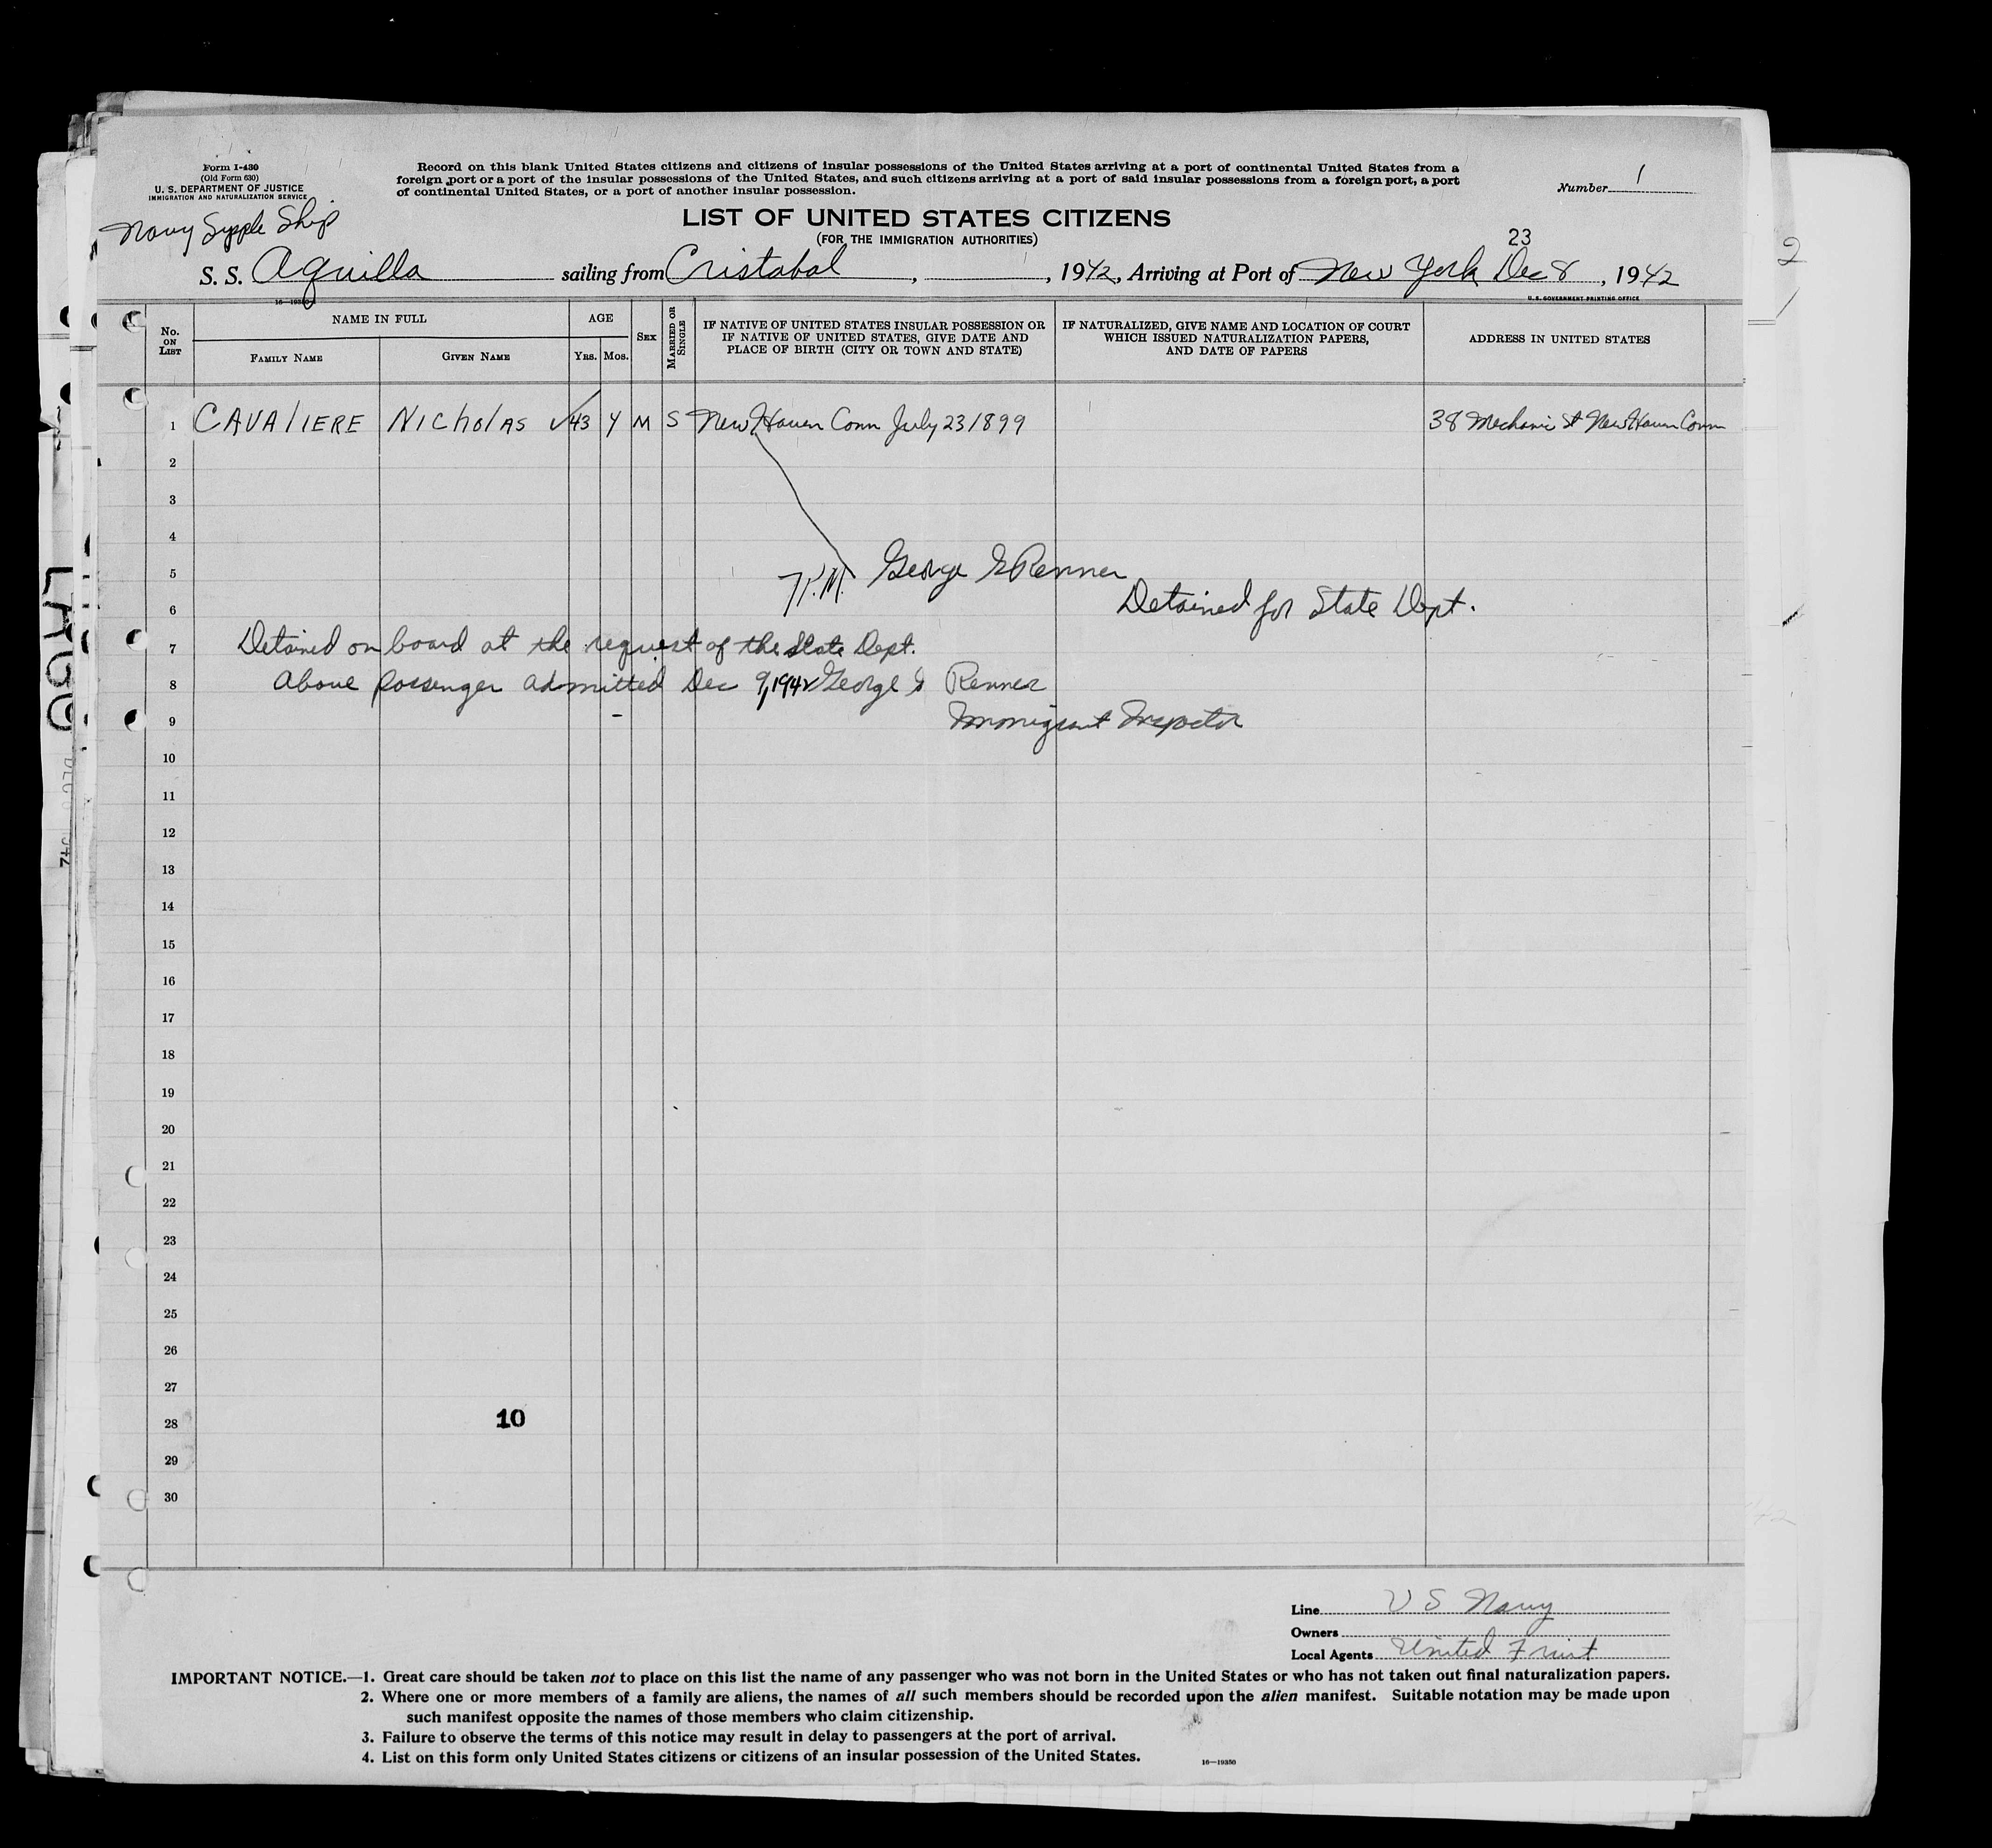 Form I-430
(Old Form 630)
U. S. DEPARTMENT OF JUSTICE
IMMIGRATION AND NATURALIZATION SERVICE
Record on this blank United States citizens and citizens of insular possessions of the United States arriving at a port of continental United States from a
foreign port or a port of the insular possessions of the United States, and such citizens arriving at a port of said insular possessions from a foreign port, a port
of continental United States, or a port of another insular possession.
Number 1
Navy Supple Ship
LIST OF UNITED STATES CITIZENS
(FOR THE IMMIGRATION AUTHORITIES)
23
2
S. S. Aquilla sailing from Cristabal , , 1942, Arriving at Port of New York Dec 8 , 1942
16—19350
U. S. GOVERNMENT PRINTING OFFICE
No. ON LIST
NAME IN FULL
FAMILY NAME
GIVEN NAME
AGE
YRS. MOS.
SEX
MARRIED OR SINGLE
IF NATIVE OF UNITED STATES INSULAR POSSESSION OR
IF NATIVE OF UNITED STATES, GIVE DATE AND
PLACE OF BIRTH (CITY OR TOWN AND STATE)
IF NATURALIZED, GIVE NAME AND LOCATION OF COURT
WHICH ISSUED NATURALIZATION PAPERS,
AND DATE OF PAPERS
ADDRESS IN UNITED STATES
1 CAVAlIERE NIChOlAS 43 4 M S New Haven Conn July 23 1899 38 Mechanic St New Haven Conn
2
3
4
5 George G Renner
6 Detained for State Dept.
7 Detained on board at the request of the State Dept.
8 Above passenger admitted Dec 9, 1942 George G Renner
9 Immigrant Inspector
10
11
12
13
14
15
16
17
18
19
20
21
22
23
24
25
26
27
28 10
29
30
Line U S Navy
Owners
Local Agents United Fruit
IMPORTANT NOTICE.—1. Great care should be taken not to place on this list the name of any passenger who was not born in the United States or who has not taken out final naturalization papers.
2. Where one or more members of a family are aliens, the names of all such members should be recorded upon the alien manifest. Suitable notation may be made upon
such manifest opposite the names of those members who claim citizenship.
3. Failure to observe the terms of this notice may result in delay to passengers at the port of arrival.
4. List on this form only United States citizens or citizens of an insular possession of the United States.
16—19350